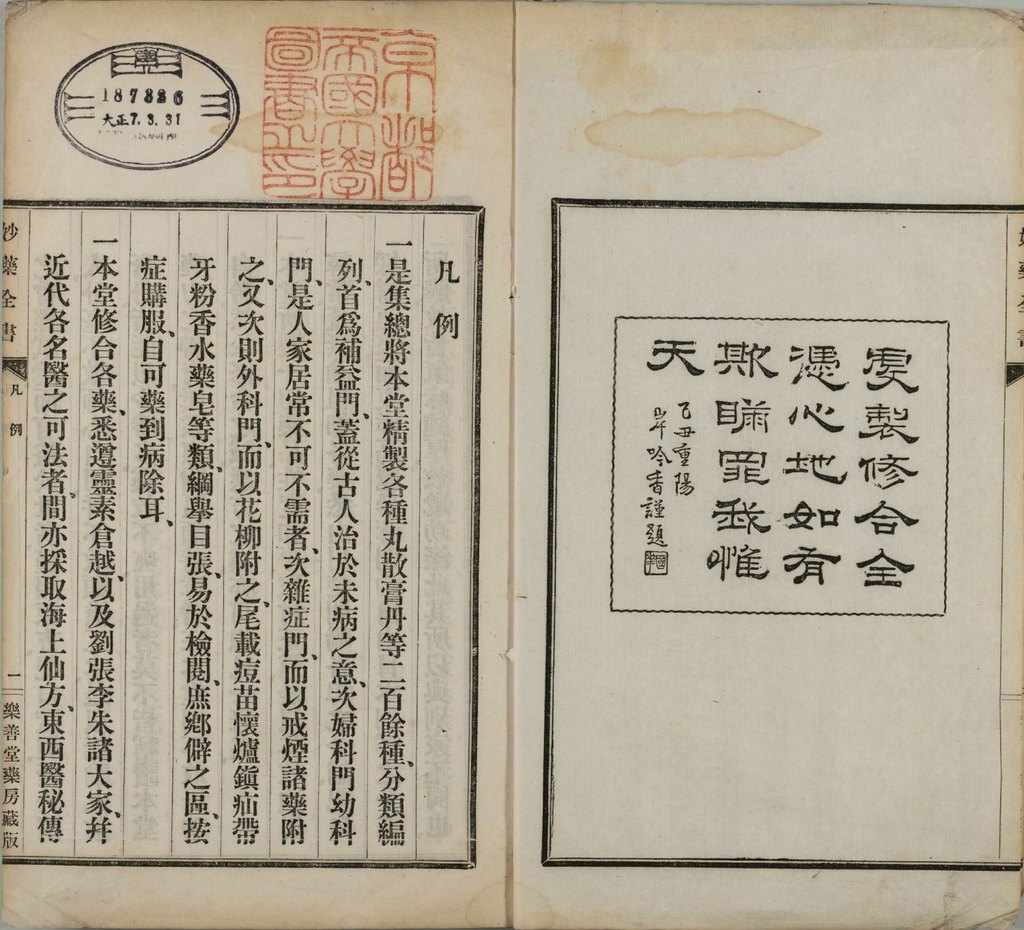 虔製修合全
憑心地如有
欺瞞罪我惟
天
己丑重陽
岸吟香謹題
京都
帝國大學
圖書之印
187326
大正7.3.31
凡例
一是集總將本堂精製各種丸散膏丹等二百餘種、分類編
列、首爲補益門、蓋從古人治於未病之意、次婦科門幼科
門、是人家居常不可不需者、次雜症門、而以戒煙諸藥附
之、又次則外科門、而以花柳附之、尾載痘苗懷爐鎮疝帶
牙粉香水藥皂等類、綱舉目張、易於檢閱、庶鄉僻之區、按
症購服、自可藥到病除耳、
一本堂修合各藥、悉遵靈素倉越、以及劉張李朱諸大家、幷
近代各名醫之可法者、間亦採取海上仙方、東西醫秘傳
妙藥全書
凡例
一
樂善堂藥房藏版